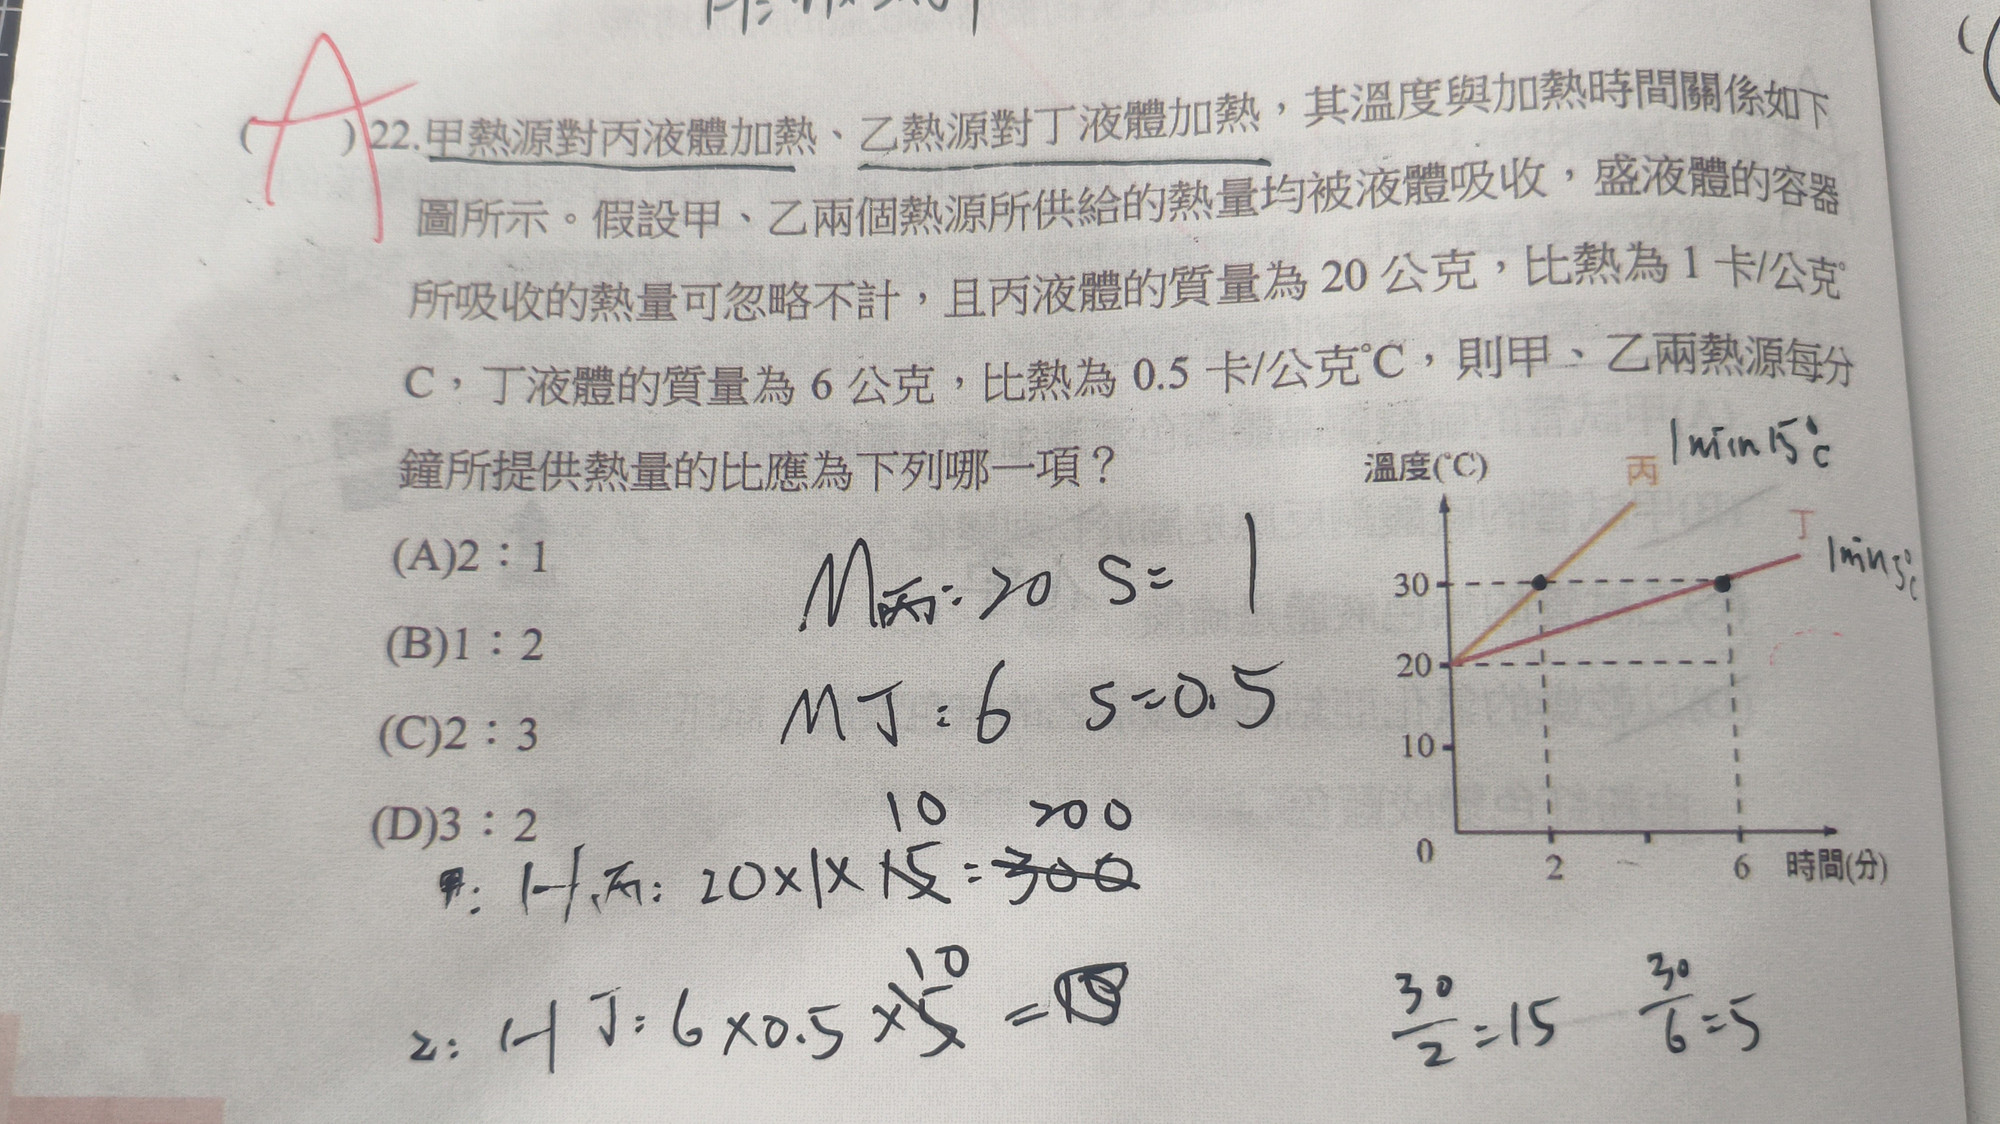 A
( )22.甲熱源對丙液體加熱、乙熱源對丁液體加熱，其溫度與加熱時間關係如下
圖所示。假設甲、乙兩個熱源所供給的熱量均被液體吸收，盛液體的容器
所吸收的熱量可忽略不計，且丙液體的質量為 20 公克，比熱為 1 卡/公克°
C，丁液體的質量為 6 公克，比熱為 0.5 卡/公克°C，則甲、乙兩熱源每分
鐘所提供熱量的比應為下列哪一項？
(A)2：1
(B)1：2
(C)2：3
(D)3：2
溫度(°C)
丙
1min15°C
丁
1min5°C
30
20
10
0
2
6
時間(分)
M丙:20 S=1
M丁:6 S=0.5
10 200
甲: H丙: 20×1×15=300
10
乙: H丁: 6×0.5×5=
30/2=15 30/6=5